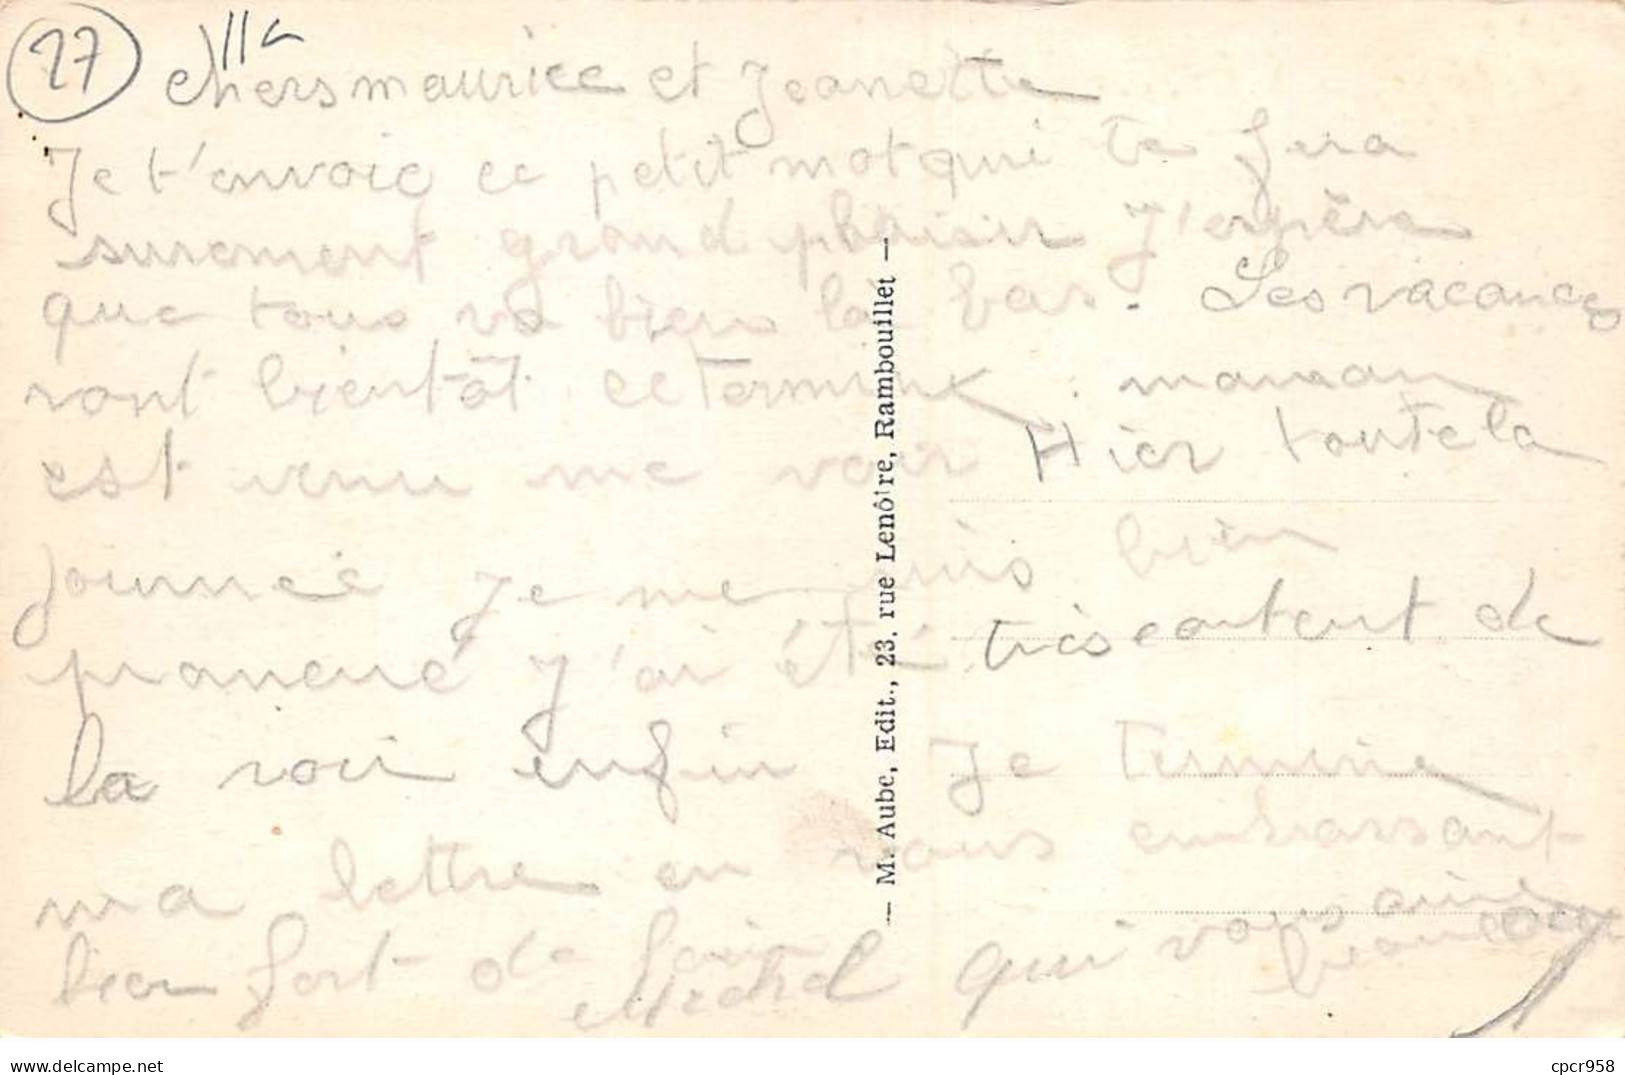 27
chers maurice et Jeanette
Je t'envoie ce petit mot qui te fera
surement grand plaisir J'espère
que tous va bien la bas. Les vacances
vont bientôt ce termine maman
est venu me voir Hier toute la
journée je me suis bien
promené J'ai été très content de
la voir enfin Je termine
ma lettre en vous embrassant
bien fort de loin qui vous aime
Michel beaucoup
— M. Aube, Edit., 23, rue Lenôtre, Rambouillet —
https://www.delcampe.net
cpcr958